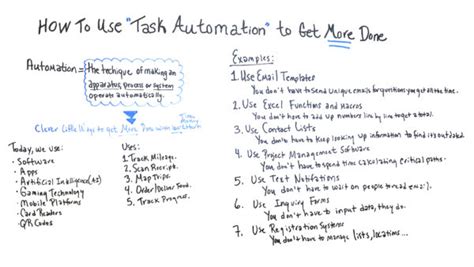 How To Use "Task Automation" to Get More Done
Automation=
the technique of making an
apparatus, process or system
operate automatically.
Clever Little Ways to get More Done when
Today, we use:
• Software
• Apps
• Artificial Intelligence (AI)
• Gaming Technology
• Mobile Platforms
• Card Readers
• QR Codes
Uses:
1. Track Mileage.
2. Scan Receipt.
3. Map Trips.
4. Order/Deliver Food.
5. Track Progress.
Examples:
1. Use Email Templates
You don't have to send unique emails for questions you get all the time.
2. Use Excel Functions and Macros
You don't have to add up numbers line by line to get a total.
3. Use Contact Lists
You don't have to keep looking up information to find it's outdated.
4. Use Project Management Software
You don't have to spend time calculating critical paths.
5. Use Text Notifications
You don't have to wait on people to read email.
6. Use Inquiry Forms
You don't have to input data, they do.
7. Use Registration Systems
You don't have to manage lists, locations...